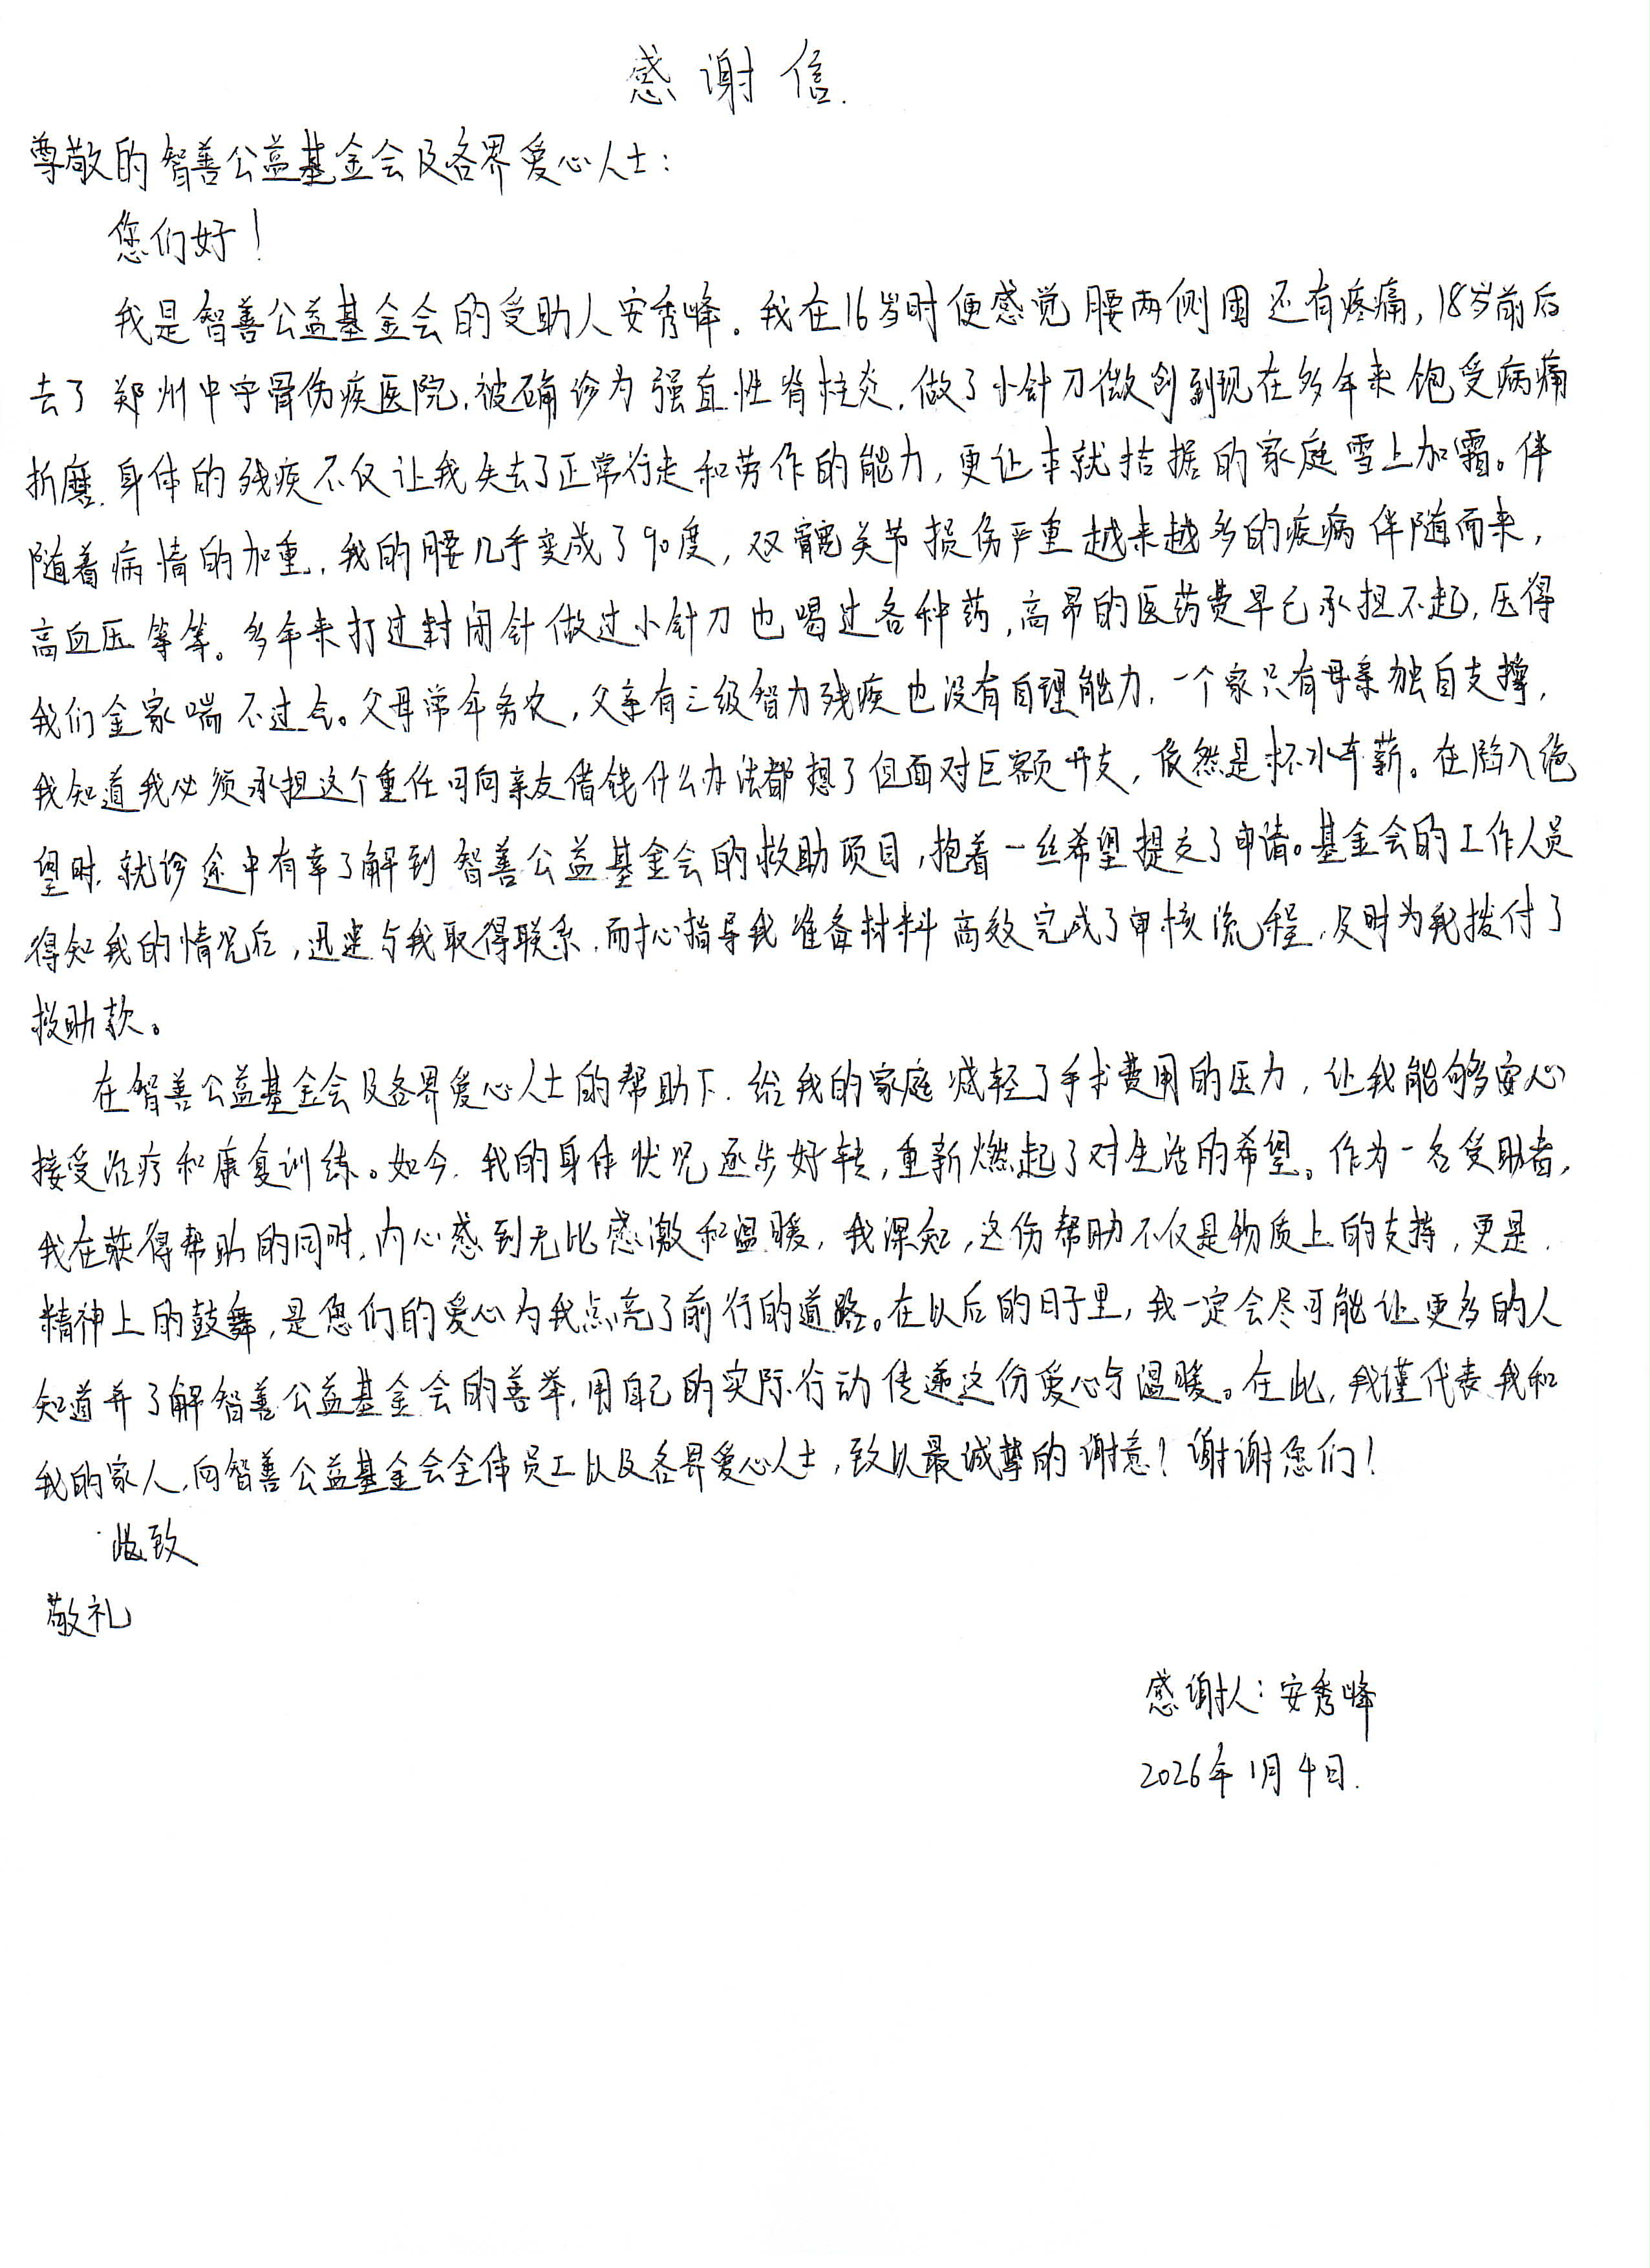 感谢信.
尊敬的智善公益基金会及各界爱心人士：
您们好！
我是智善公益基金会的受助人安秀峰。我在16岁时便感觉腰两侧困还有疼痛，18岁前后
去了郑州中宇骨伤疾医院，被确诊为强直性脊柱炎，做了小针刀微创到现在多年来饱受病痛
折磨，身体的残疾不仅让我失去了正常行走和劳作的能力，更让本就拮据的家庭雪上加霜。伴
随着病情的加重，我的腰几乎变成了90度，双髋关节损伤严重越来越多的疾病伴随而来，
高血压等等。多年来打过封闭针做过小针刀也喝过各种药，高昂的医药费早已承担不起，压得
我们全家喘不过气。父母常年务农，父亲有三级智力残疾也没有自理能力，一个家只有母亲独自支撑，
我知道我必须承担这个重任可向亲友借钱什么办法都想了但面对巨额开支，依然是杯水车薪。在陷入绝
望时，就诊途中有幸了解到智善公益基金会的救助项目，抱着一丝希望提交了申请。基金会的工作人员
得知我的情况后，迅速与我取得联系，耐心指导我准备材料高效完成了审核流程，及时为我拨付了
救助款。
在智善公益基金会及各界爱心人士的帮助下，给我的家庭减轻了手术费用的压力，让我能够安心
接受治疗和康复训练。如今，我的身体状况逐步好转，重新燃起了对生活的希望。作为一名受助者，
我在获得帮助的同时，内心感到无比感激和温暖，我深知，这份帮助不仅是物质上的支持，更是
精神上的鼓舞，是您们的爱心为我点亮了前行的道路。在以后的日子里，我一定会尽可能让更多的人
知道并了解智善公益基金会的善举，用自己的实际行动传递这份爱心与温暖。在此，我谨代表我和
我的家人，向智善公益基金会全体员工以及各界爱心人士，致以最诚挚的谢意！谢谢您们！
此致
敬礼
感谢人：安秀峰
2026年1月4日.